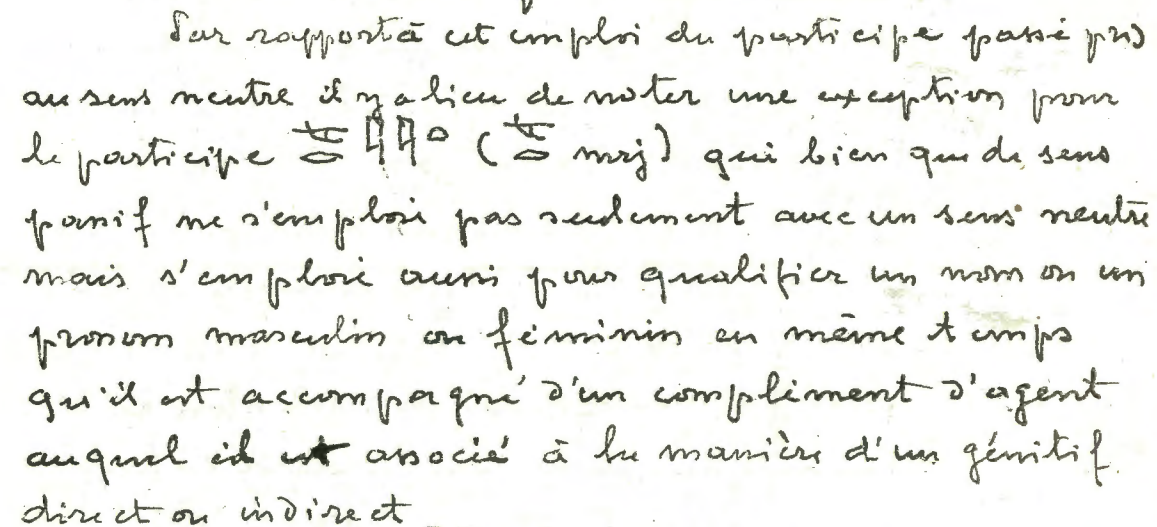 Par rapport à cet emploi du participe passé pris
au sens neutre il y a lieu de noter une exception pour
le participe 𓌻𓂋𓇋𓇋 ( 𓌻𓂋 mrj) qui bien que de sens
passif ne s'emploie pas seulement avec un sens neutre
mais s'emploie aussi pour qualifier un nom ou un
pronom masculin ou féminin en même temps
qu'il est accompagné d'un complément d'agent
auquel il est associé à la manière d'un génitif
direct ou indirect